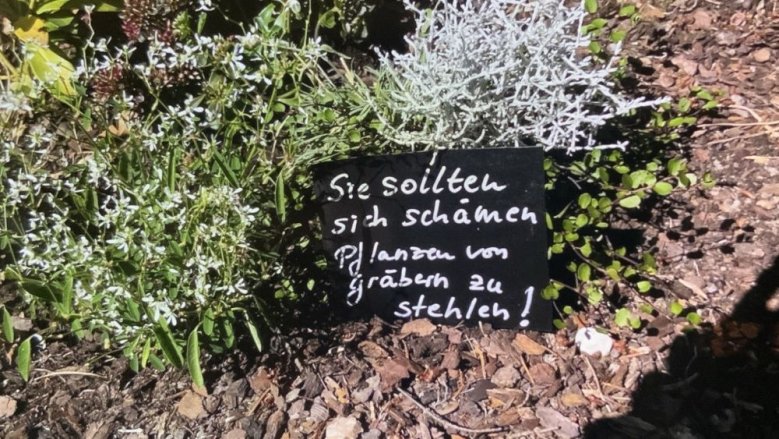 Sie sollten
sich schämen
Pflanzen von
gräbern zu
stehlen!